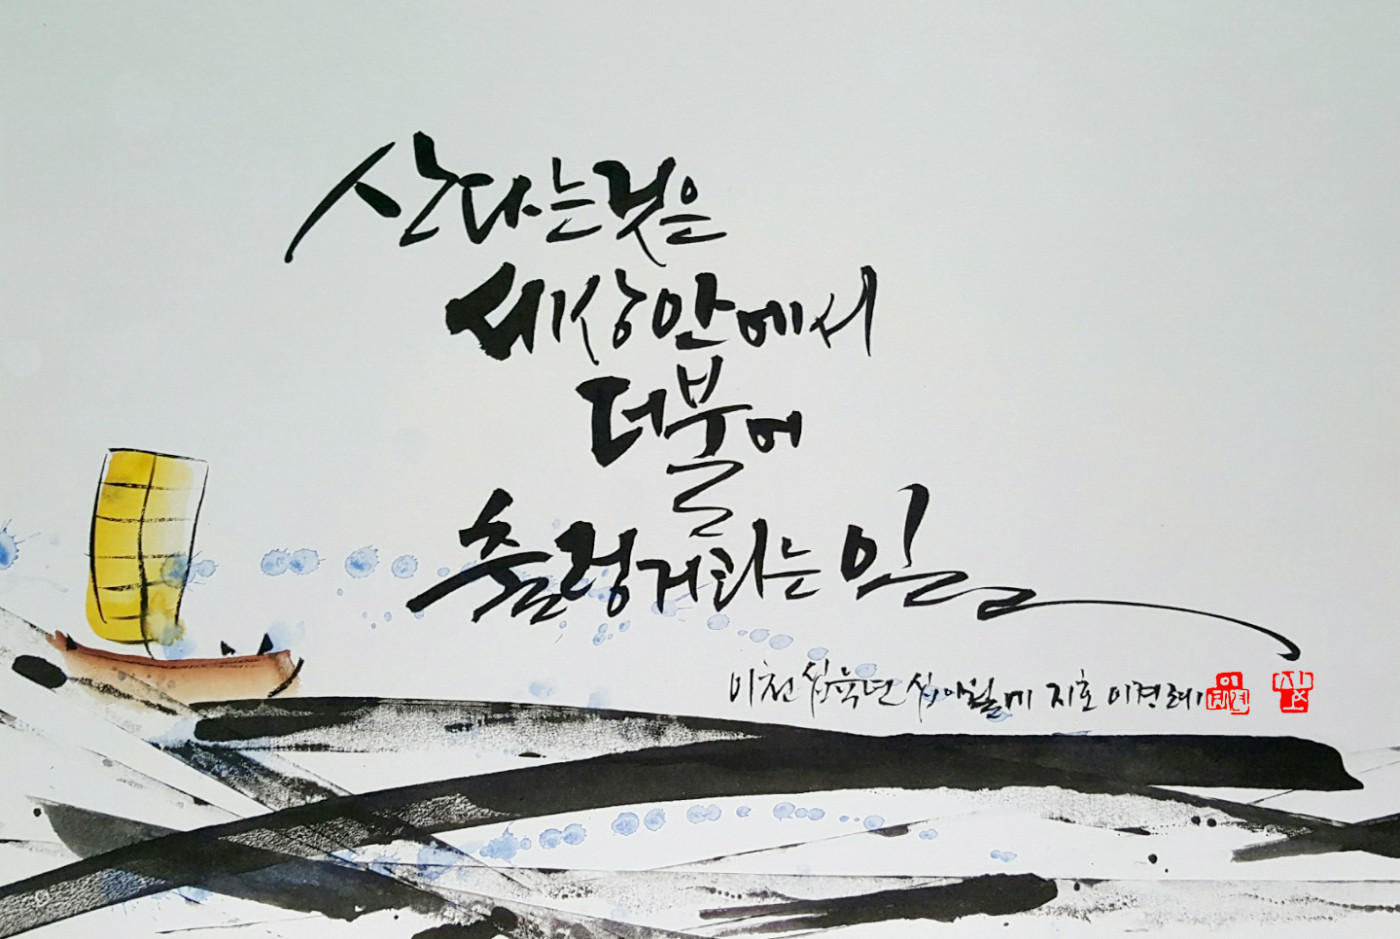 산다는것은
세상안에서
더불어
출렁거리는 일
이천십육년 십이월에 지호 이경례